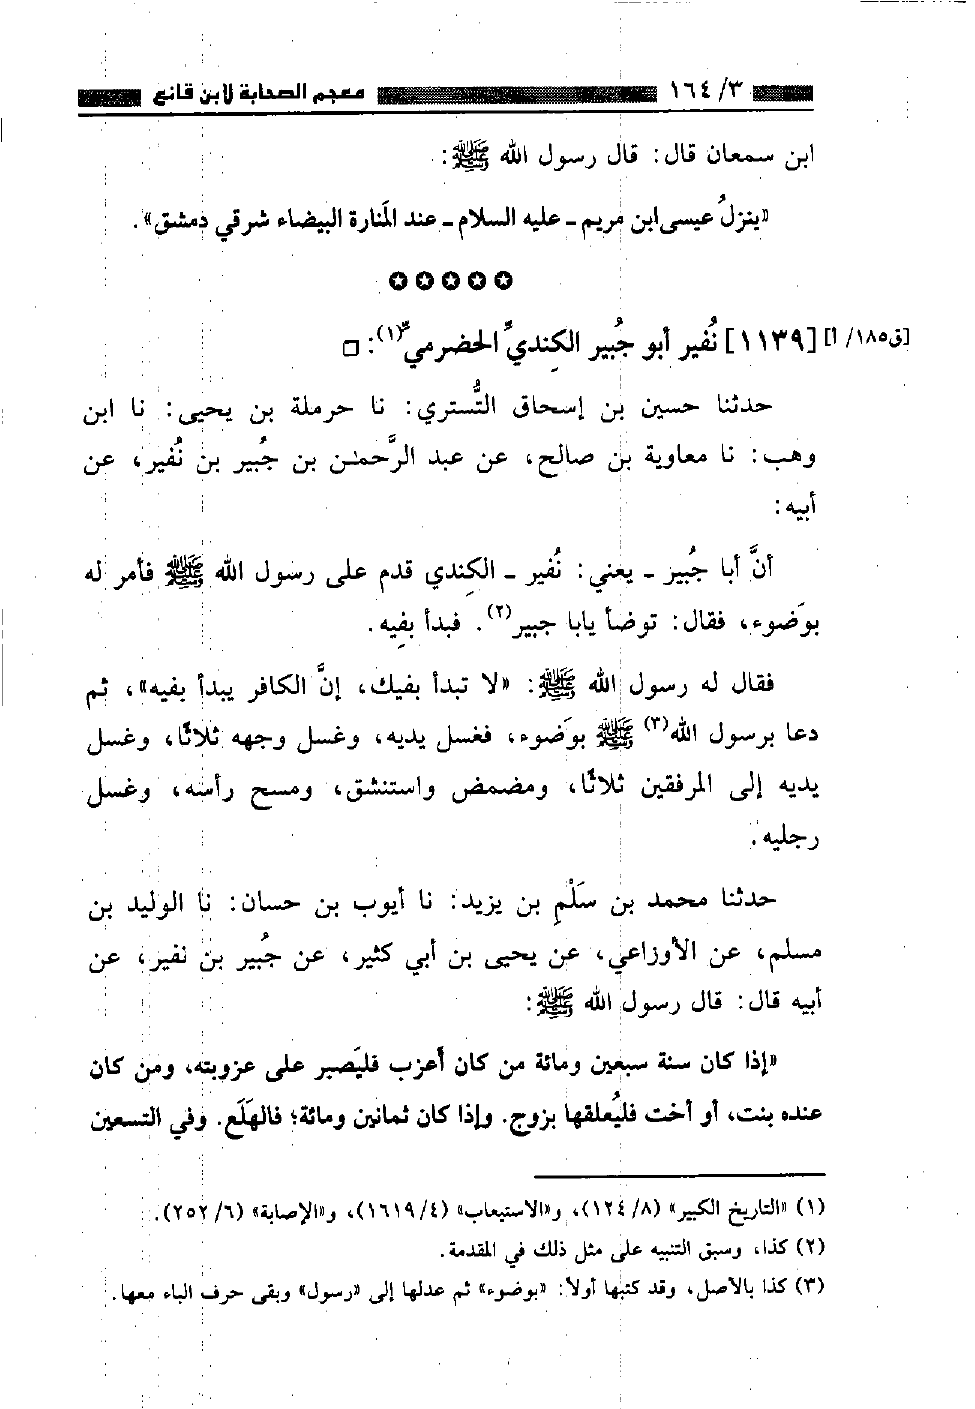 ٣/ ١٦٤ معجم الصحابة لابن قانع
ابن سمعان قال: قال رسول الله ﷺ:
«ينزلُ عيسى ابن مريم ـ عليه السلام ـ عند المَنارة البيضاء شرقي دمشق».
✪✪✪✪✪
[ق١٨٥/ أ] [١١٣٩] نُفير أبو جُبير الكِنديِّ الحضرميِّ(١): □
حدثنا حسين بن إسحاق التُّستري: نا حرملة بن يحيى: نا ابن
وهب: نا معاوية بن صالح، عن عبد الرَّحمٰن بن جُبير بن نُفير، عن
أبيه:
أنَّ أبا جُبير ـ يعني: نُفير ـ الكِندي قدم على رسول الله ﷺ فأمر له
بوَضوء، فقال: توضأ يابا جبير(٢). فبدأ بفِيه.
فقال له رسول الله ﷺ: «لا تبدأ بفيك، إنَّ الكافر يبدأ بفيه»، ثم
دعا برسول الله(٣) ﷺ بوَضوء، فغسل يديه، وغسل وجهه ثلاثًا، وغسل
يديه إلى المرفقين ثلاثًا، ومضمض واستنشق، ومسح رأسه، وغسل
رجليه.
حدثنا محمد بن سَلْمِ بن يزيد: نا أيوب بن حسان: نا الوليد بن
مسلم، عن الأوزاعي، عن يحيى بن أبي كثير، عن جُبير بن نفير، عن
أبيه قال: قال رسول الله ﷺ:
«إذا كان سنة سبعين ومائة من كان أعزب فليَصبر على عزوبته، ومن كان
عنده بنت، أو أخت فليُعلقها بزوج. وإذا كان ثمانين ومائة؛ فالهَلَع. وفي التسعين
(١) «التاريخ الكبير» (٨/ ١٢٤)، و«الاستيعاب» (٤/ ١٦١٩)، و«الإصابة» (٦/ ٢٥٢).
(٢) كذا، وسبق التنبيه على مثل ذلك في المقدمة.
(٣) كذا بالأصل، وقد كتبها أولاً: «بوضوء» ثم عدلها إلى «رسول» وبقى حرف الباء معها.